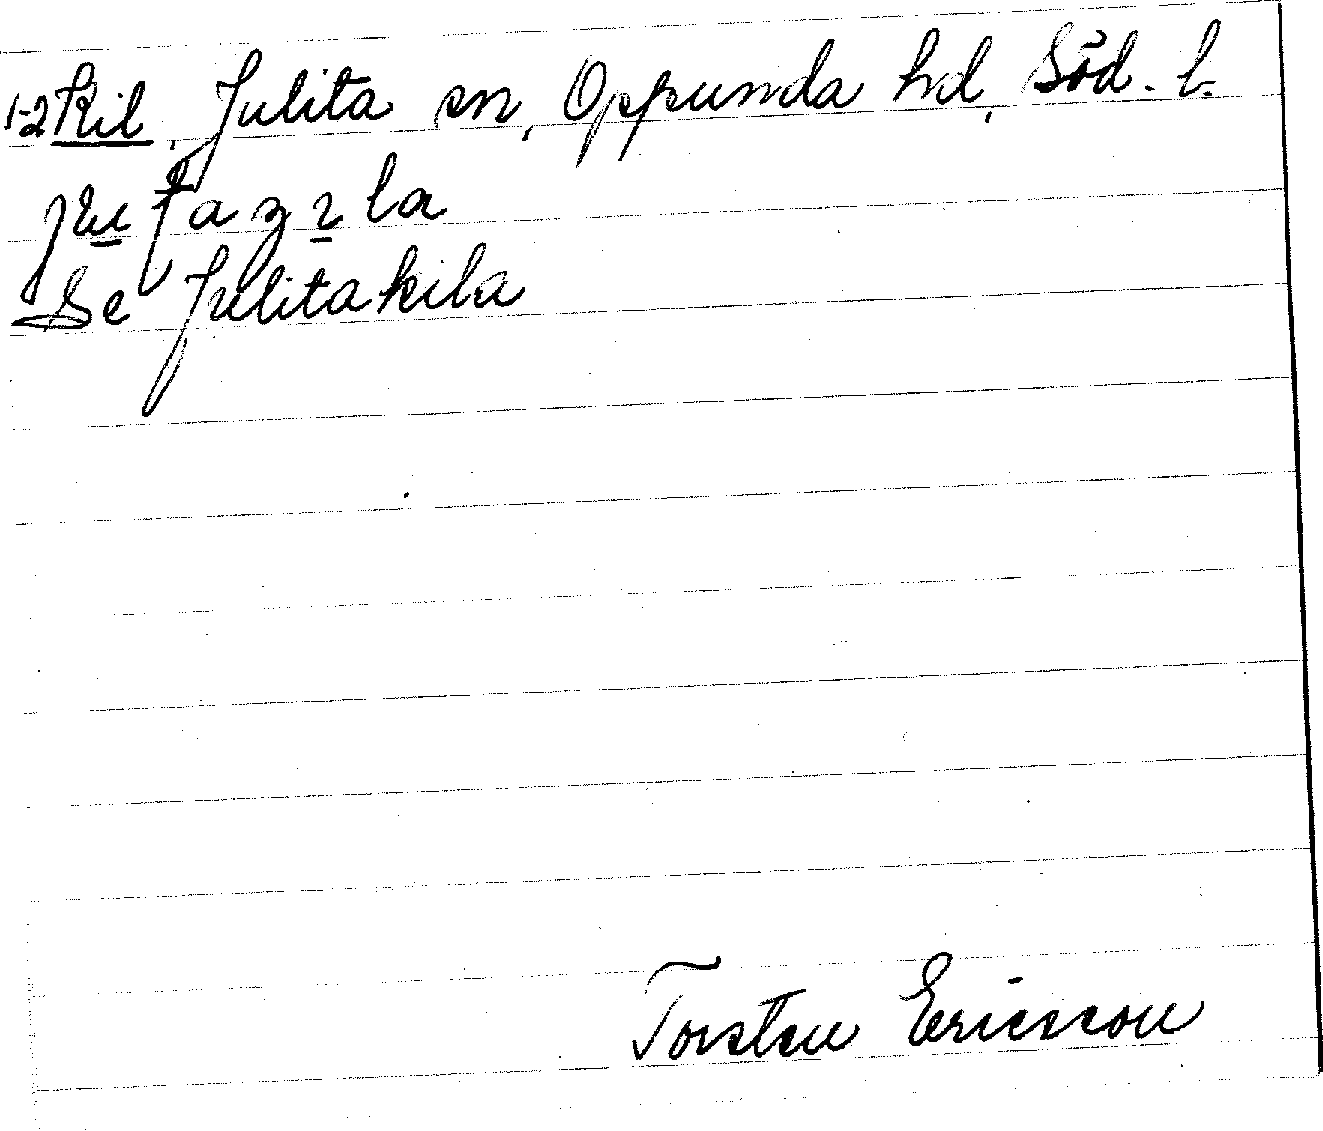 1-2 Kil, Julita sn, Oppunda hd, Söd. l.
Se Julitakila
Torsten Ericsson